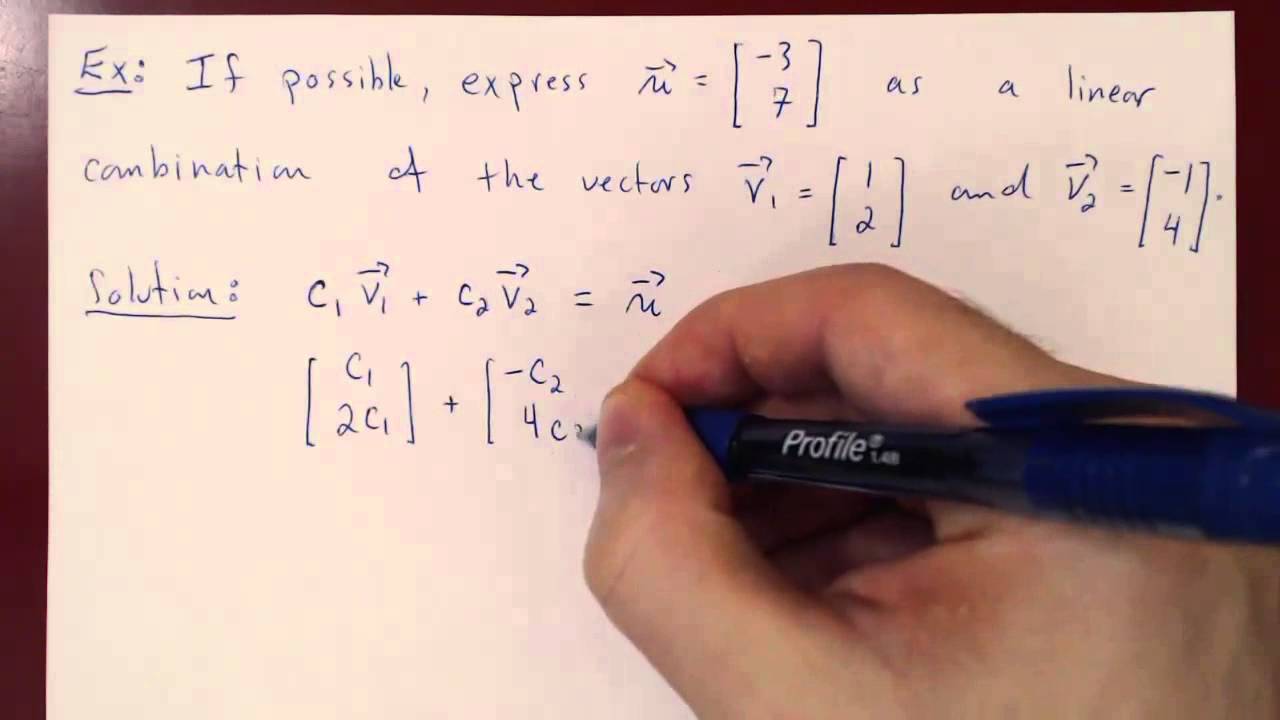 Ex: If possible, express u⃗ = [-3 7] as a linear
combination of the vectors v⃗₁ = [1 2] and v⃗₂ = [-1 4].
Solution: c₁ v⃗₁ + c₂ v⃗₂ = u⃗
[c₁ 2c₁] + [-c₂ 4c₂
Profile® 1.4B